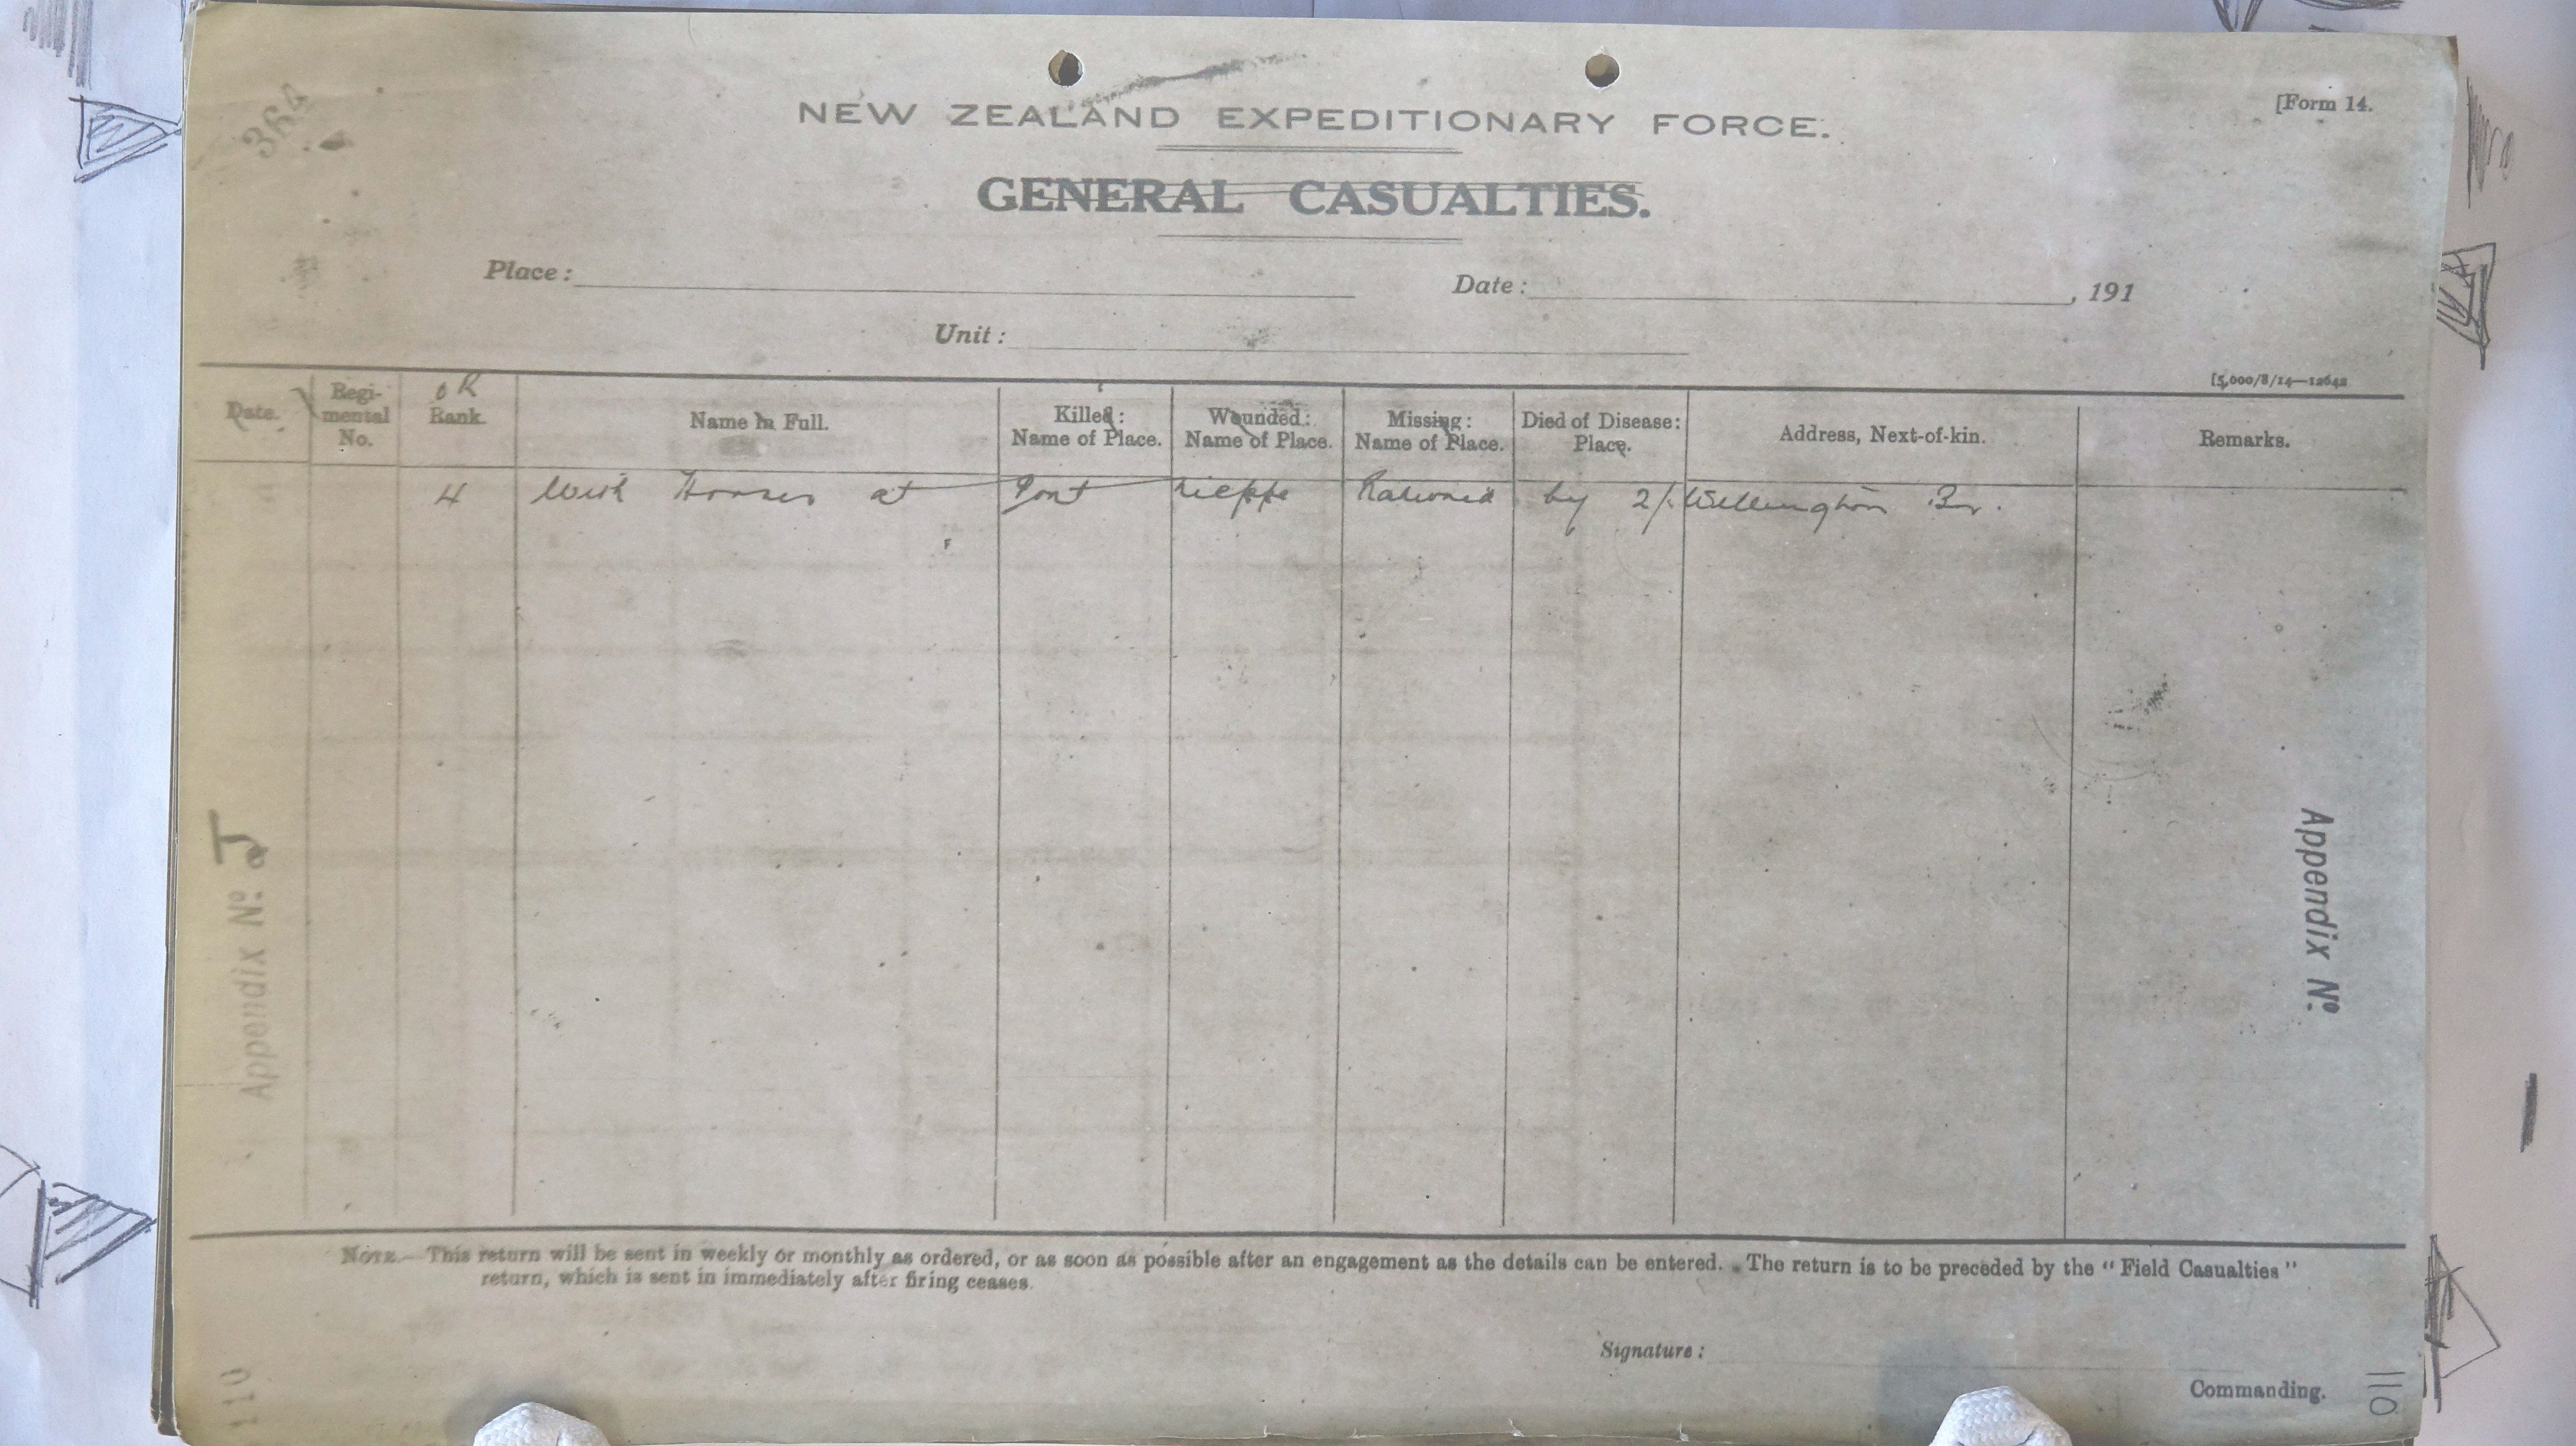 364
[Form 14.
NEW ZEALAND EXPEDITIONARY FORCE.
GENERAL CASUALTIES.
Place :
Date : , 191
Unit :
[5,000/8/14—12642
Date.
Regi-
mental
No.
OR
Rank.
Name in Full.
Killed :
Name of Place.
Wounded :
Name of Place.
Missing :
Name of Place.
Died of Disease :
Place.
Address, Next-of-kin.
Remarks.
4 With Horses at Pont Nieppe Rationed by 2/. Wellington Bn.
Appendix Nº J
Appendix Nº
NOTE.—This return will be sent in weekly or monthly as ordered, or as soon as possible after an engagement as the details can be entered. The return is to be preceded by the “ Field Casualties ”
return, which is sent in immediately after firing ceases.
Signature :
Commanding.
110
110